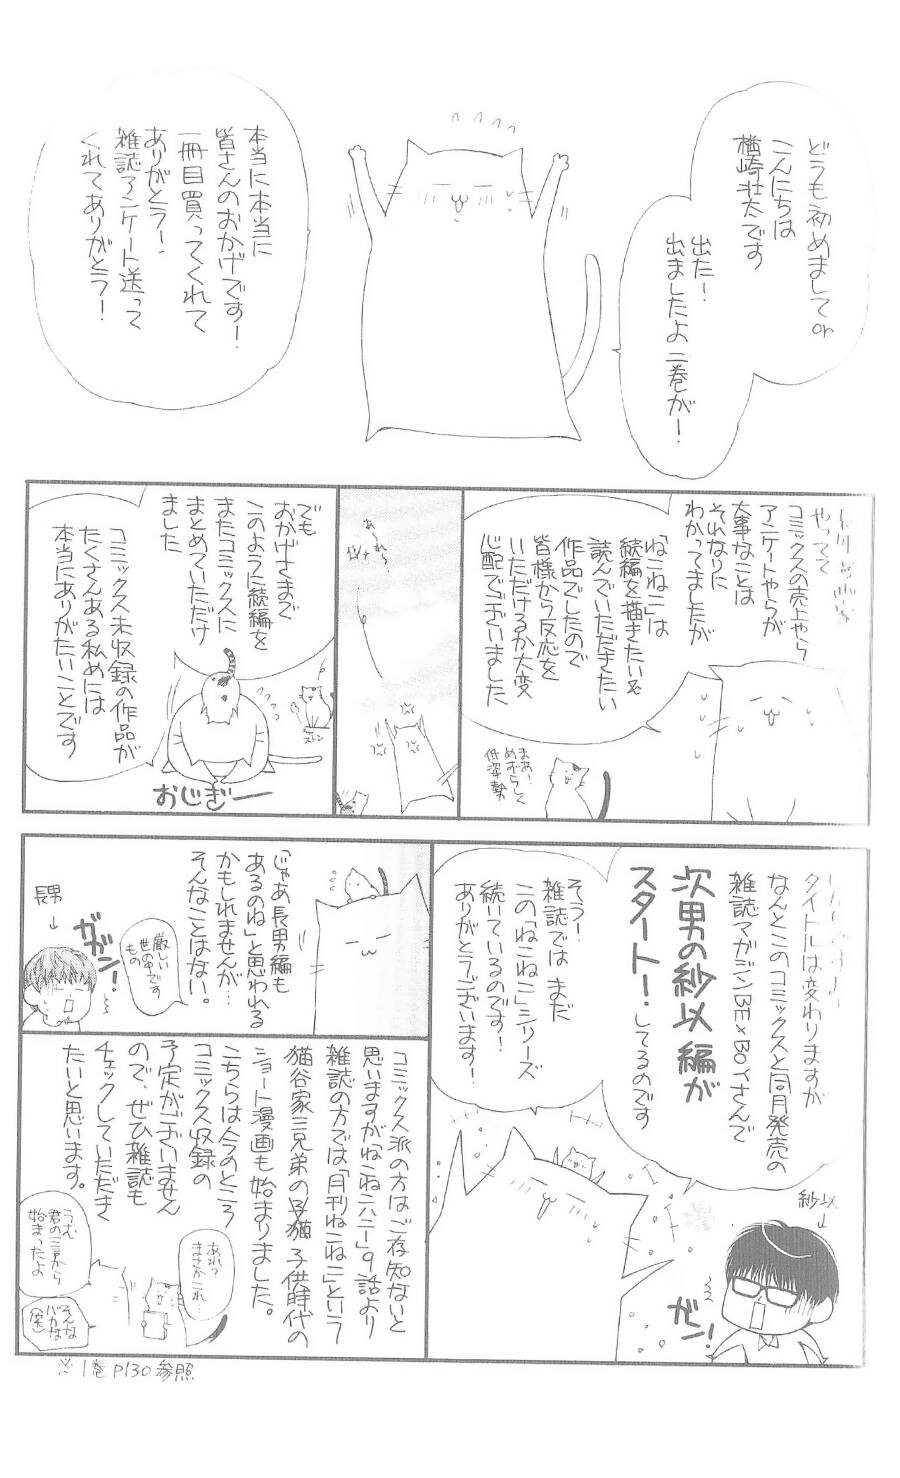 どうも初めましてor
こんにちは
楢崎壮太です
出た！
出ましたよ二巻が！
本当に本当に
皆さんのおかげです！
一冊目買ってくれて
ありがとう！
雑誌アンケート送って
くれてありがとう！
やってて
コミックスの売上やら
アンケートやらが
大事なことは
それなりに
わかってましたが
「ねこねこ」は
続編を描きたい&
読んでいただきたい
作品でしたので
皆様から反応を
いただけるか大変
心配でございました
まあ！
めずらしく
低姿勢
あ〜れ〜
でも
おかげさまで
このように続編を
またコミックスに
まとめていただけ
ました
ストン
おじぎー
コミックス未収録の作品が
たくさんある私めには
本当にありがたいことです
タイトルは変わりますが
なんとこのコミックスと同月発売の
雑誌マガジンBE×BOYさんで
次男の紗以編が
スタート！してるのです
紗以
ガン！
そう！
雑誌では まだ
この「ねこねこ」シリーズ
続いているのです！
ありがとうございます！
「じゃあ長男編も
あるのね」と思われる
かもしれませんが…
そんなことはない。
厳しい
世の中です
もの
長男
ガガン！
コミックス派の方はご存知ないと
思いますが「ねこねこハニー」9話より
雑誌の方では「月刊ねこねこ」という
猫谷家三兄弟の子猫子供時代の
ショート漫画も始まりました。
こちらは今のところ
コミックス収録の
予定がございません
ので、ぜひ雑誌も
チェックしていただき
たいと思います。
あれ？
まさかこれ…
うむ
君の一言から
始まったよ
そんな
バカな
(笑)
※1巻P130参照